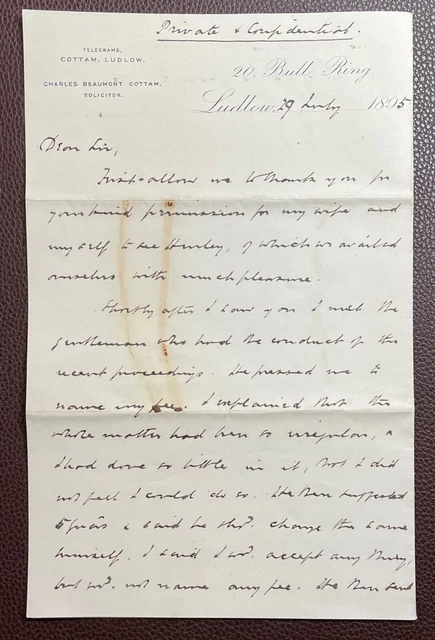 Private & Confidential.
TELEGRAMS,
COTTAM, LUDLOW.
CHARLES BEAUMONT COTTAM,
SOLICITOR.
20, Bull Ring,
Ludlow, 29 July 1895
Dear Sir,
First allow me to thank you for
your kind permission for my wife and
myself to see Hurley, of which we availed
ourselves with much pleasure.
Shortly after I saw you I met the
gentleman who had the conduct of the
recent proceedings. He pressed me to
name my fee. I explained that the
whole matter had been so irregular, &
I had done so little in it, that I did
not feel I could do so. He then suggested
5 guas & said he shd. charge the same
himself. I said I wd. accept any thing,
but wd. not name any fee. He then sent